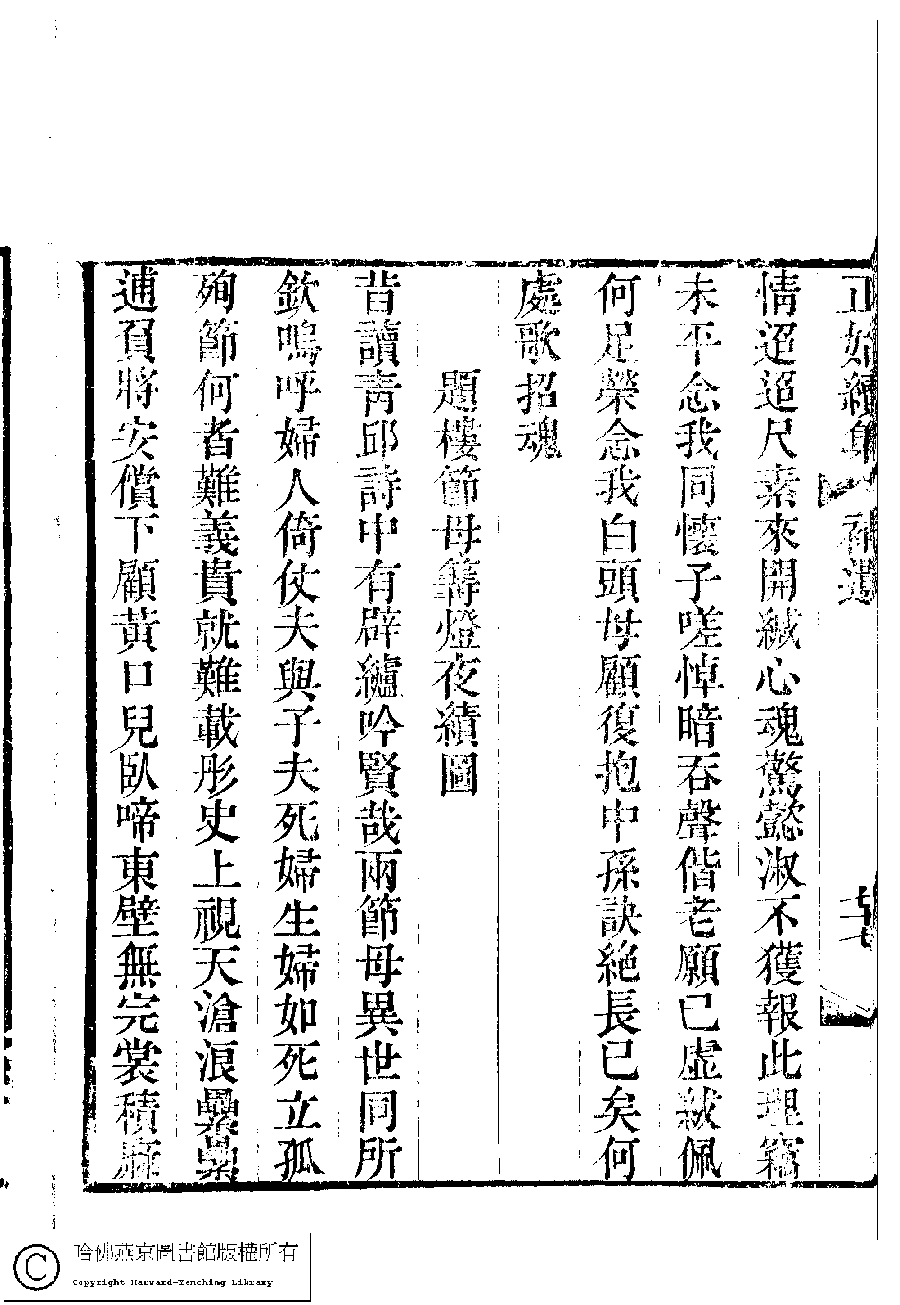 正始續集 補遺 十七
情迢迢尺素來開緘心魂驚懿淑不獲報此理竊
未平念我同懷子嗟悼暗吞聲偕老願已虛紱佩
何足榮念我白頭母顧復抱中孫訣絕長已矣何
處歌招魂
題樓節母篝燈夜績圖
昔讀青邱詩中有辟纑吟賢哉兩節母異世同所
欽嗚呼婦人倚仗夫與子夫死婦生婦如死立孤
殉節何者難義貴就難載彤史上視天滄浪纍纍
逋負將安償下顧黃口兒臥啼東壁無完裳積麻
哈佛燕京圖書館版權所有
Copyright Harvard-Yenching Library